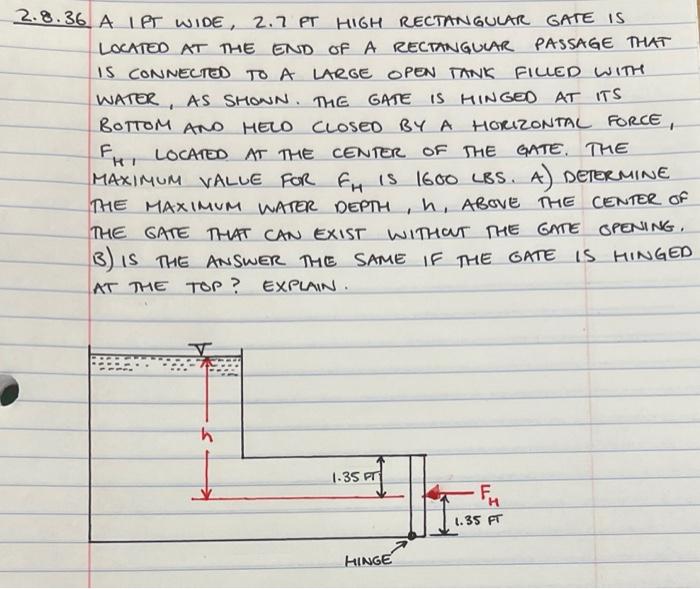 2.8.36 A 1 FT WIDE, 2.7 FT HIGH RECTANGULAR GATE IS
LOCATED AT THE END OF A RECTANGULAR PASSAGE THAT
IS CONNECTED TO A LARGE OPEN TANK FILLED WITH
WATER, AS SHOWN. THE GATE IS HINGED AT ITS
BOTTOM AND HELD CLOSED BY A HORIZONTAL FORCE,
FH, LOCATED AT THE CENTER OF THE GATE. THE
MAXIMUM VALUE FOR FH IS 1600 LBS. A) DETERMINE
THE MAXIMUM WATER DEPTH, h, ABOVE THE CENTER OF
THE GATE THAT CAN EXIST WITHOUT THE GATE OPENING.
B) IS THE ANSWER THE SAME IF THE GATE IS HINGED
AT THE TOP? EXPLAIN.
h
1.35 FT
FH
1.35 FT
HINGE